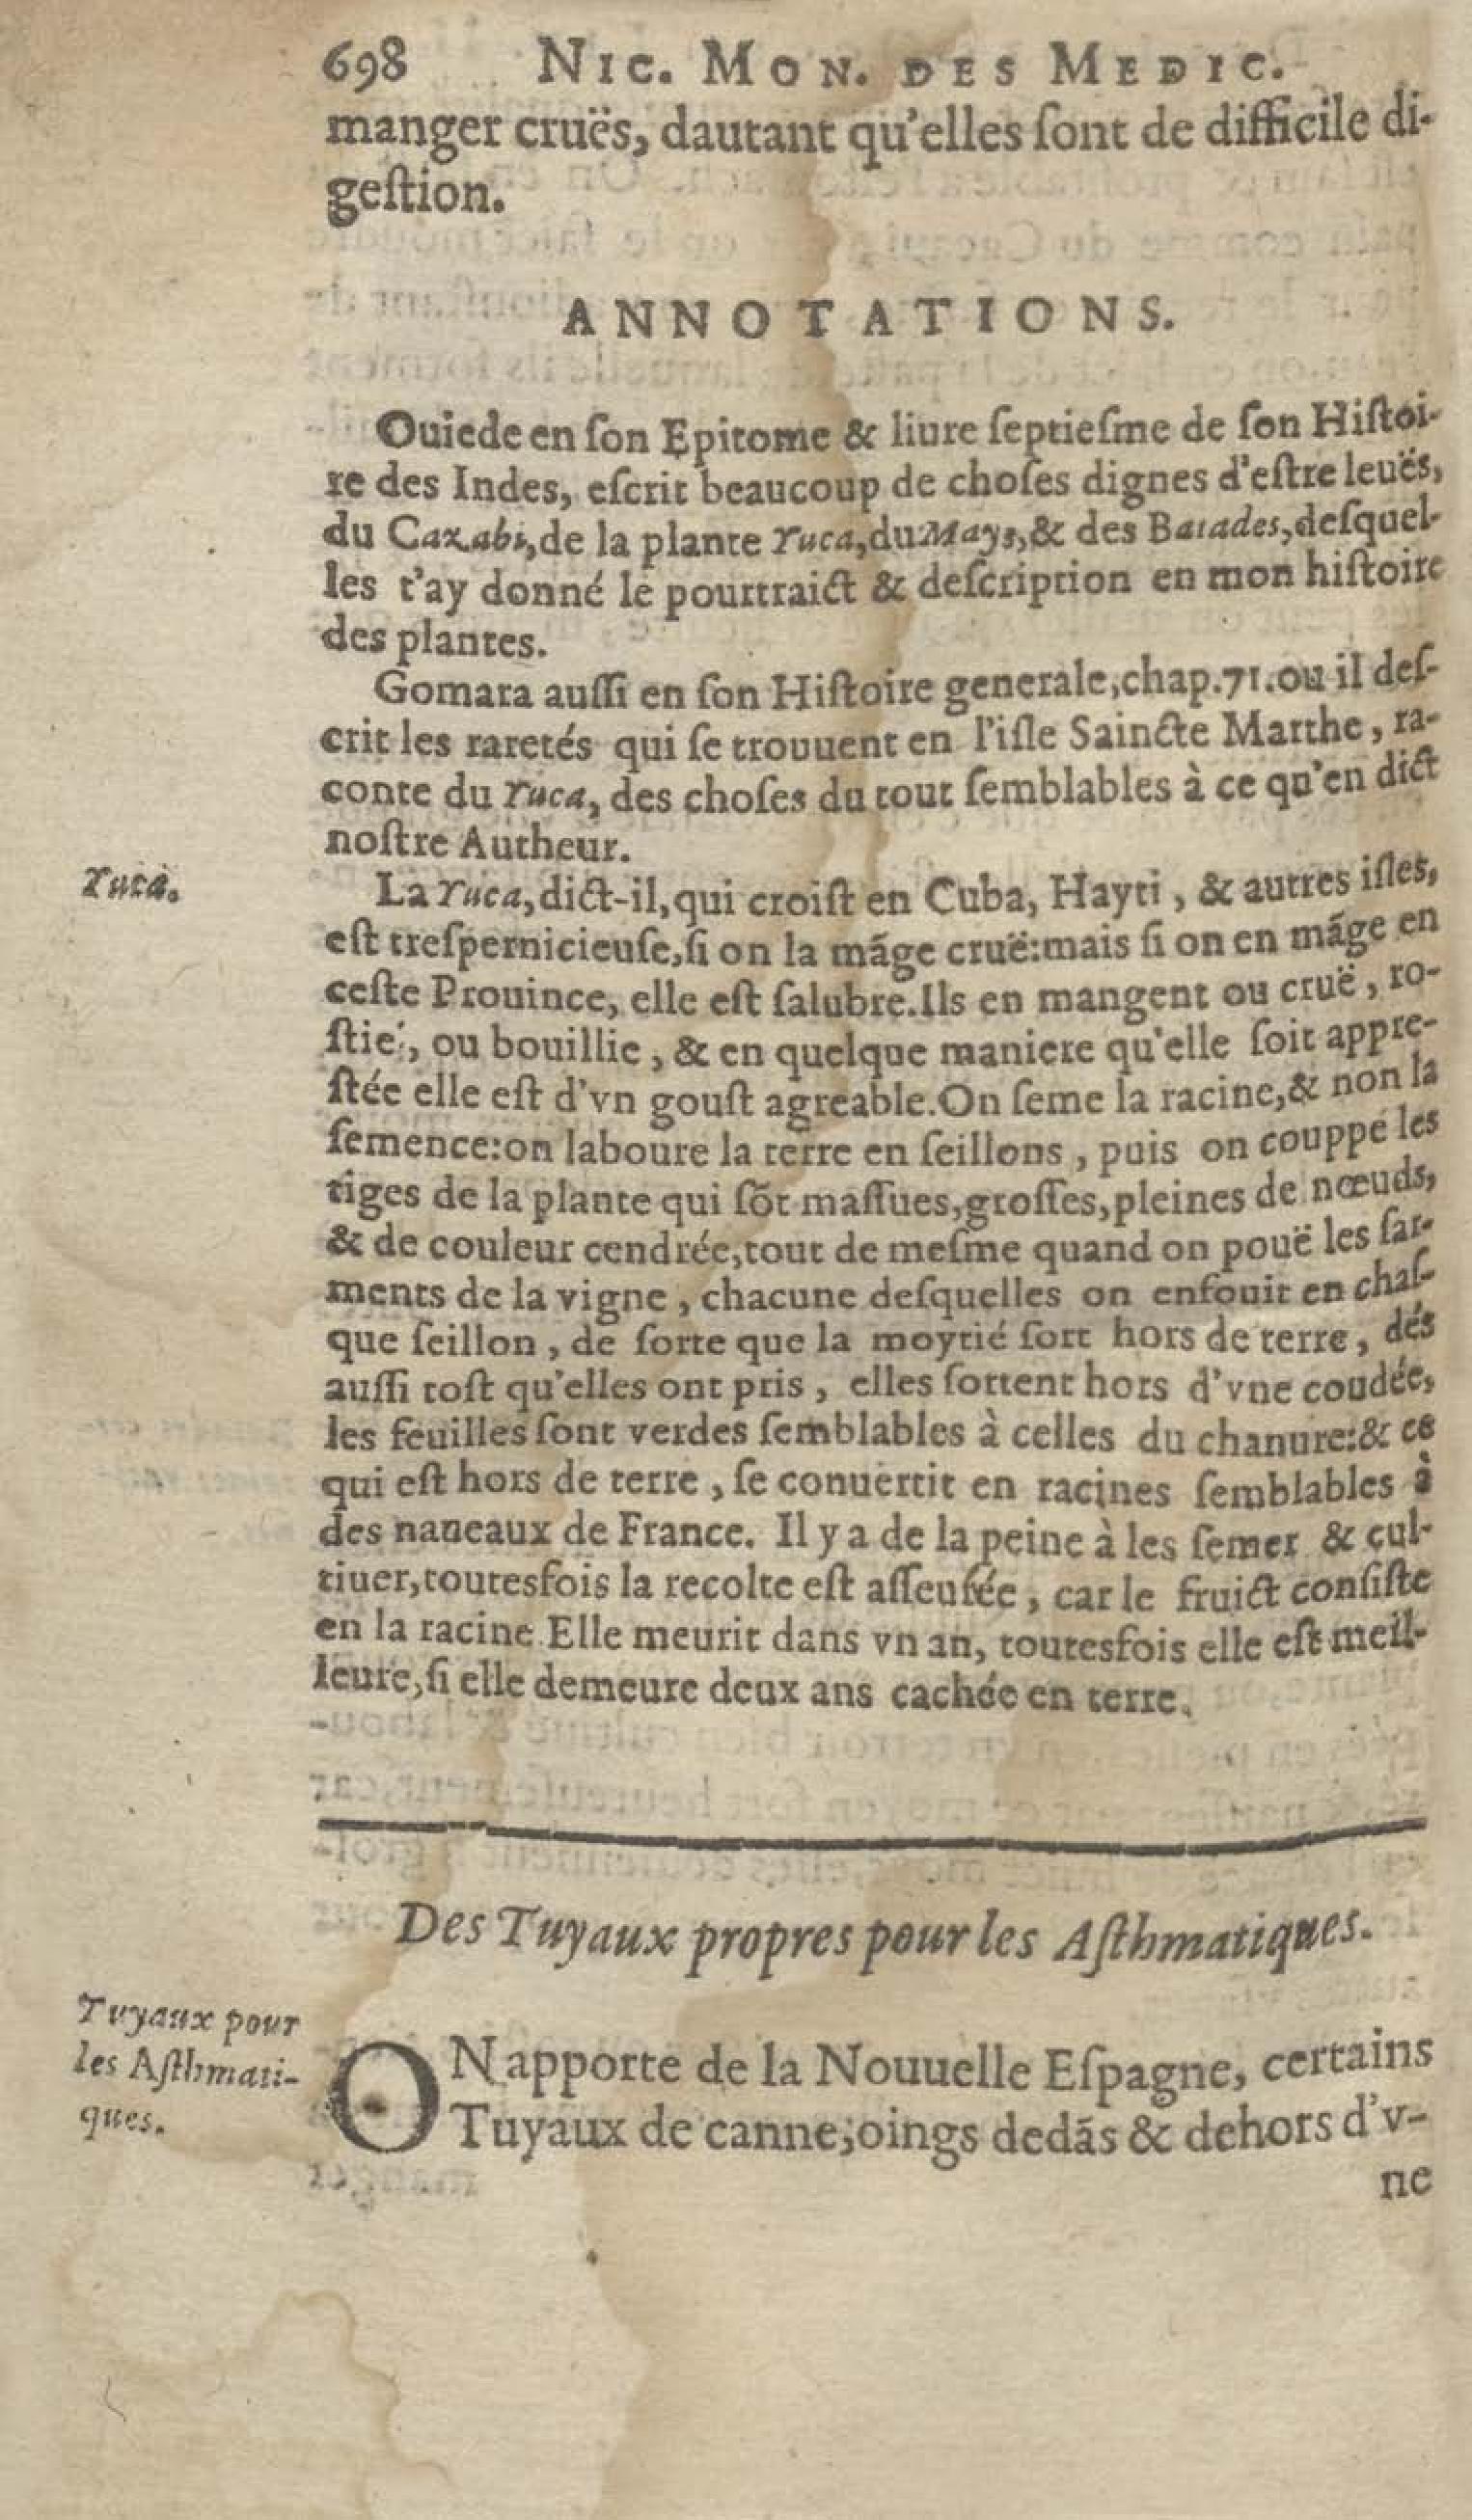 698 NIC. MON. DES MEDIC.
manger cruës, dautant qu'elles ſont de difficile di-
geſtion.
ANNOTATIONS.
Ouiede en ſon Epitome & liure ſeptieſme de ſon Hiſtoi-
re des Indes, eſcrit beaucoup de choſes dignes d'eſtre leuës,
du Cazabi, de la plante Yuca, du Mays, & des Batades, deſquel-
les t'ay donné le pourtraict & deſcription en mon hiſtoire
des plantes.
Gomara auſſi en ſon Hiſtoire generale, chap. 71. ou il deſ-
crit les raretés qui ſe trouuent en l'iſle Saincte Marthe, ra-
conte du Yuca, des choſes du tout ſemblables à ce qu'en dict
noſtre Autheur.
Yuca.
La Yuca, dict-il, qui croiſt en Cuba, Hayti, & autres iſles,
eſt treſpernicieuſe, ſi on la mãge cruë: mais ſi on en mãge en
ceſte Prouince, elle eſt ſalubre. Ils en mangent ou cruë, ro-
ſtie, ou bouillie, & en quelque maniere qu'elle ſoit appre-
ſtée elle eſt d'vn gouſt agreable. On ſeme la racine, & non la
ſemence: on laboure la terre en ſeillons, puis on couppe les
tiges de la plante qui ſõt maſſues, groſſes, pleines de nœuds,
& de couleur cendrée, tout de meſme quand on pouë les ſar-
ments de la vigne, chacune deſquelles on enfouit en chaſ-
que ſeillon, de ſorte que la moytié ſort hors de terre, dés
auſſi toſt qu'elles ont pris, elles ſortent hors d'vne coudée,
les feuilles ſont verdes ſemblables à celles du chanure: & ce
qui eſt hors de terre, ſe conuertit en racines ſemblables à
des naueaux de France. Il y a de la peine à les ſemer & cul-
tiuer, toutesfois la recolte eſt aſſeuſée, car le fruict conſiſte
en la racine. Elle meurit dans vn an, toutesfois elle eſt meil-
leure, ſi elle demeure deux ans cachée en terre.
Des Tuyaux propres pour les Aſthmatiques.
Tuyaux pour
les Aſthmati-
ques.
ON apporte de la Nouuelle Eſpagne, certains
Tuyaux de canne, oings dedãs & dehors d'v-
ne